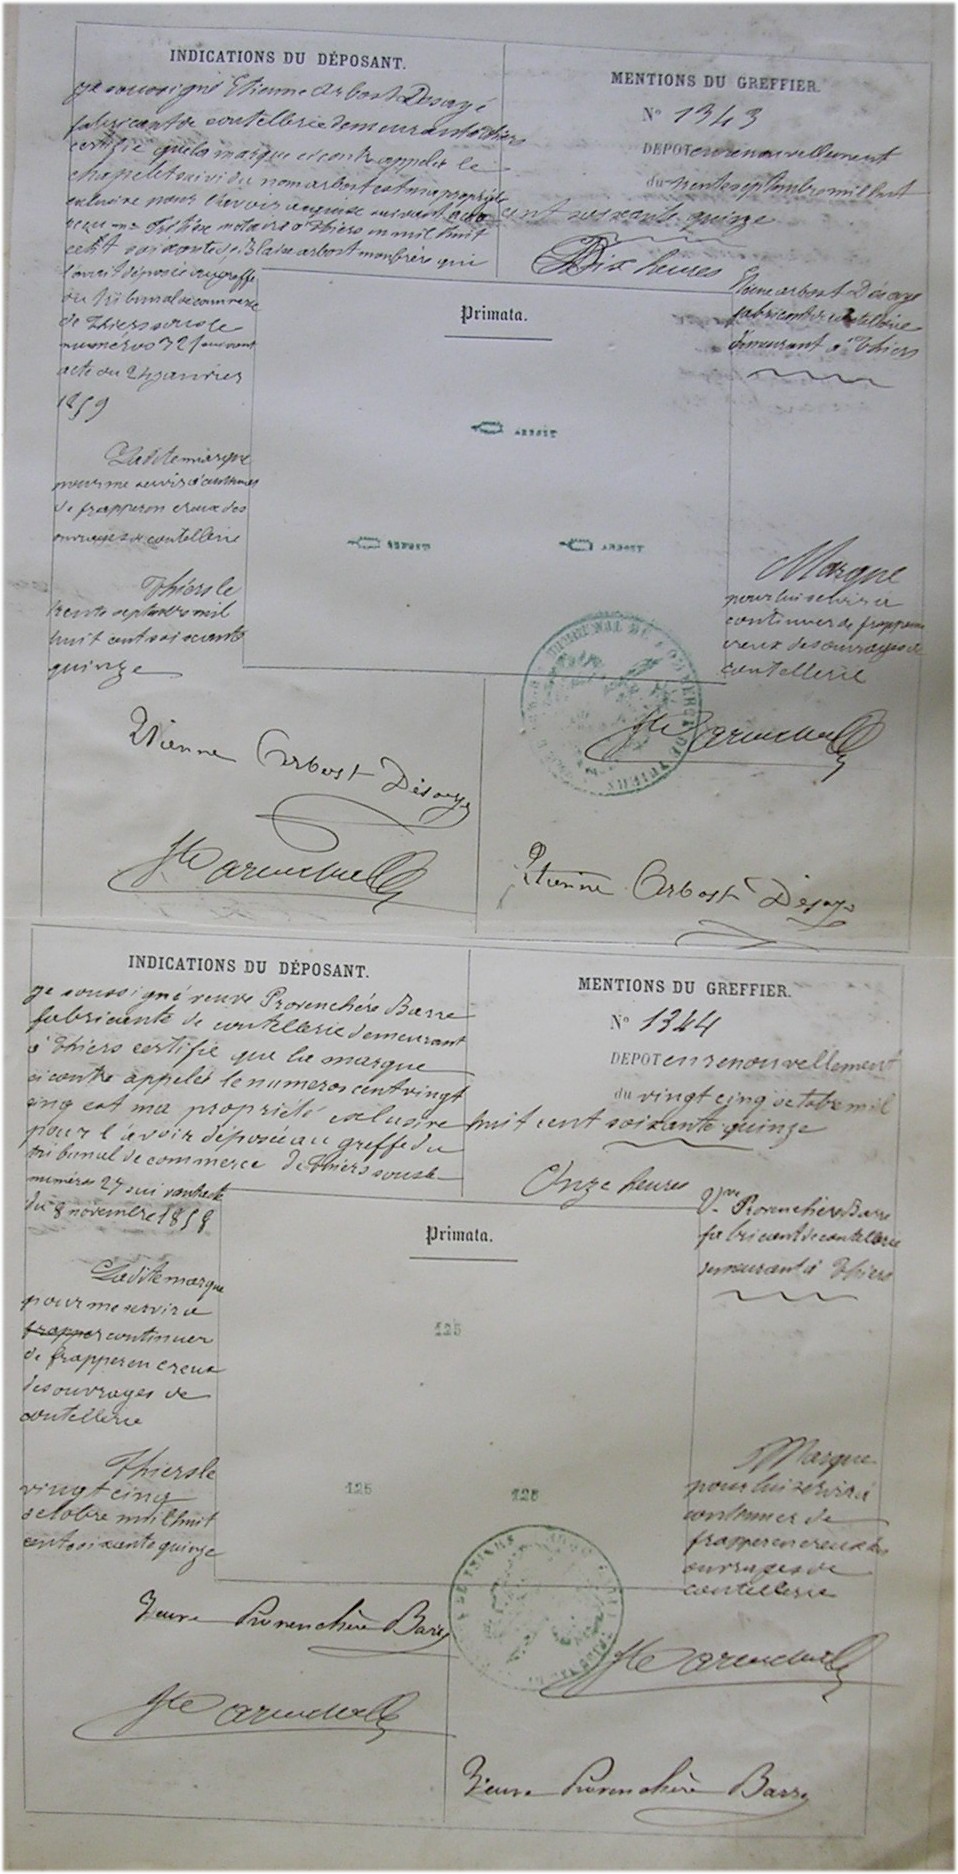 INDICATIONS DU DÉPOSANT.
je soussigné Etienne Arbost Désayé
fabricant de coutellerie demeurant à Thiers
certifie que la marque ci contre appelée le
chapelet suivi du nom arbost est ma propriété
exclusive pour l'avoir acquise suivant acte
reçu notaire à Thiers en mil huit
cent soixante de Blaise arbost mon frère qui
l'avait déposée au greffe
du tribunal de commerce
de Thiers sous le
numéros 321 suivant
acte du 24 janvier
1859
Ladite marque
pour me servir à continuer
de frapper en creux des
ouvrages de coutellerie
Thiers le
trente septembre mil
huit cent soixante
quinze
MENTIONS DU GREFFIER.
N° 1343
DÉPOT en renouvellement
du trente septembre mil huit
cent soixante quinze
Dix heures
Etienne arbost Désayé
fabricant de coutellerie
demeurant à Thiers
Primata.
Marque
pour lui servir à
continuer de frapper en
creux des ouvrages de
coutellerie
Etienne Arbost Désayé
Etienne Arbost Désayé
INDICATIONS DU DÉPOSANT.
je soussigné veuve Provenchère Barre
fabricante de coutellerie demeurant
à Thiers certifie que la marque
ci contre appelée le numéros cent vingt
cinq est ma propriété exclusive
pour l'avoir déposée au greffe du
tribunal de commerce de Thiers sous le
numéros 27 suivant acte
du 8 novembre 1858
Ladite marque
pour me servir à
frapper continuer
de frapper en creux
des ouvrages de
coutellerie
Thiers le
vingt cinq
octobre mil huit
cent soixante quinze
MENTIONS DU GREFFIER.
N° 1344
DÉPOT en renouvellement
du vingt cinq octobre mil
huit cent soixante quinze
Onze heures
Vve Provenchère Barre
fabricant de coutellerie
demeurant à Thiers
Primata.
125
125 125
Marque
pour lui servir à
continuer de
frapper en creux des
ouvrages de
coutellerie
Veuve Provenchère Barre
Veuve Provenchère Barre